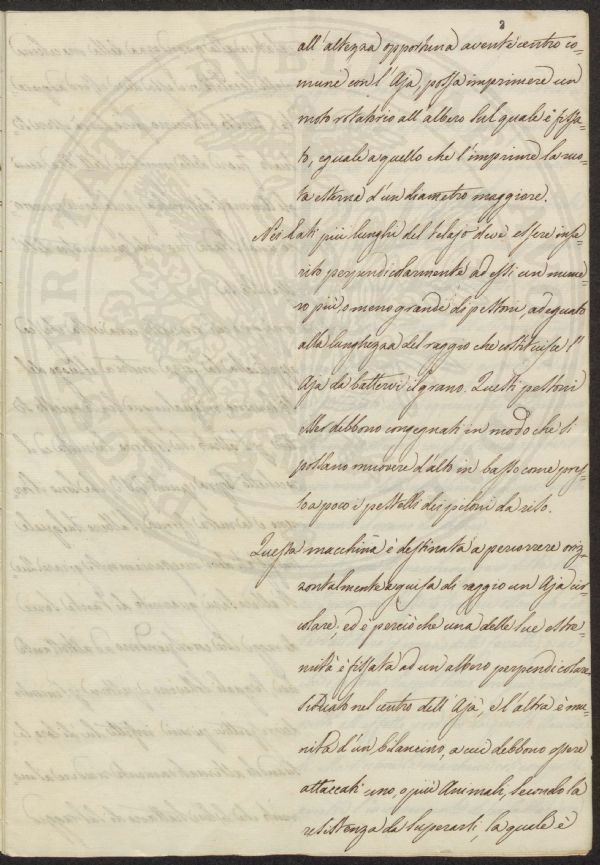 2
all'altezza opportuna avente centro co-
mune con l'Aja, possa imprimere un
moto rotatorio all'albero sul quale è fissa-
to, eguale a quello che l'imprime la ruo-
ta esterna d'un diametro maggiore.
Nei lati più lunghi del telajo deve essere inse-
rito perpendicolarmente ad essi un nume-
ro più, o meno grande di pestoni, adeguato
alla lunghezza del raggio che costituisce l'
Aja da battervi il grano. Questi pestoni
esser debbono congegnati in modo che si
possano muovere d'alto in basso come pres-
so a poco i pestelli dei piloni da riso.
Questa macchina è destinata a percorrere oriz-
zontalmente a guisa di raggio un Aja cir-
colare; ed è perciò che una delle sue estre-
mità è fissata ad un albero perpendicolare
situato nel centro dell'Aja, e l'altra è mu-
nita d'un bilancino, a cui debbono essere
attaccati uno, o più Animali, secondo la
resistenza da superarsi, la quale è